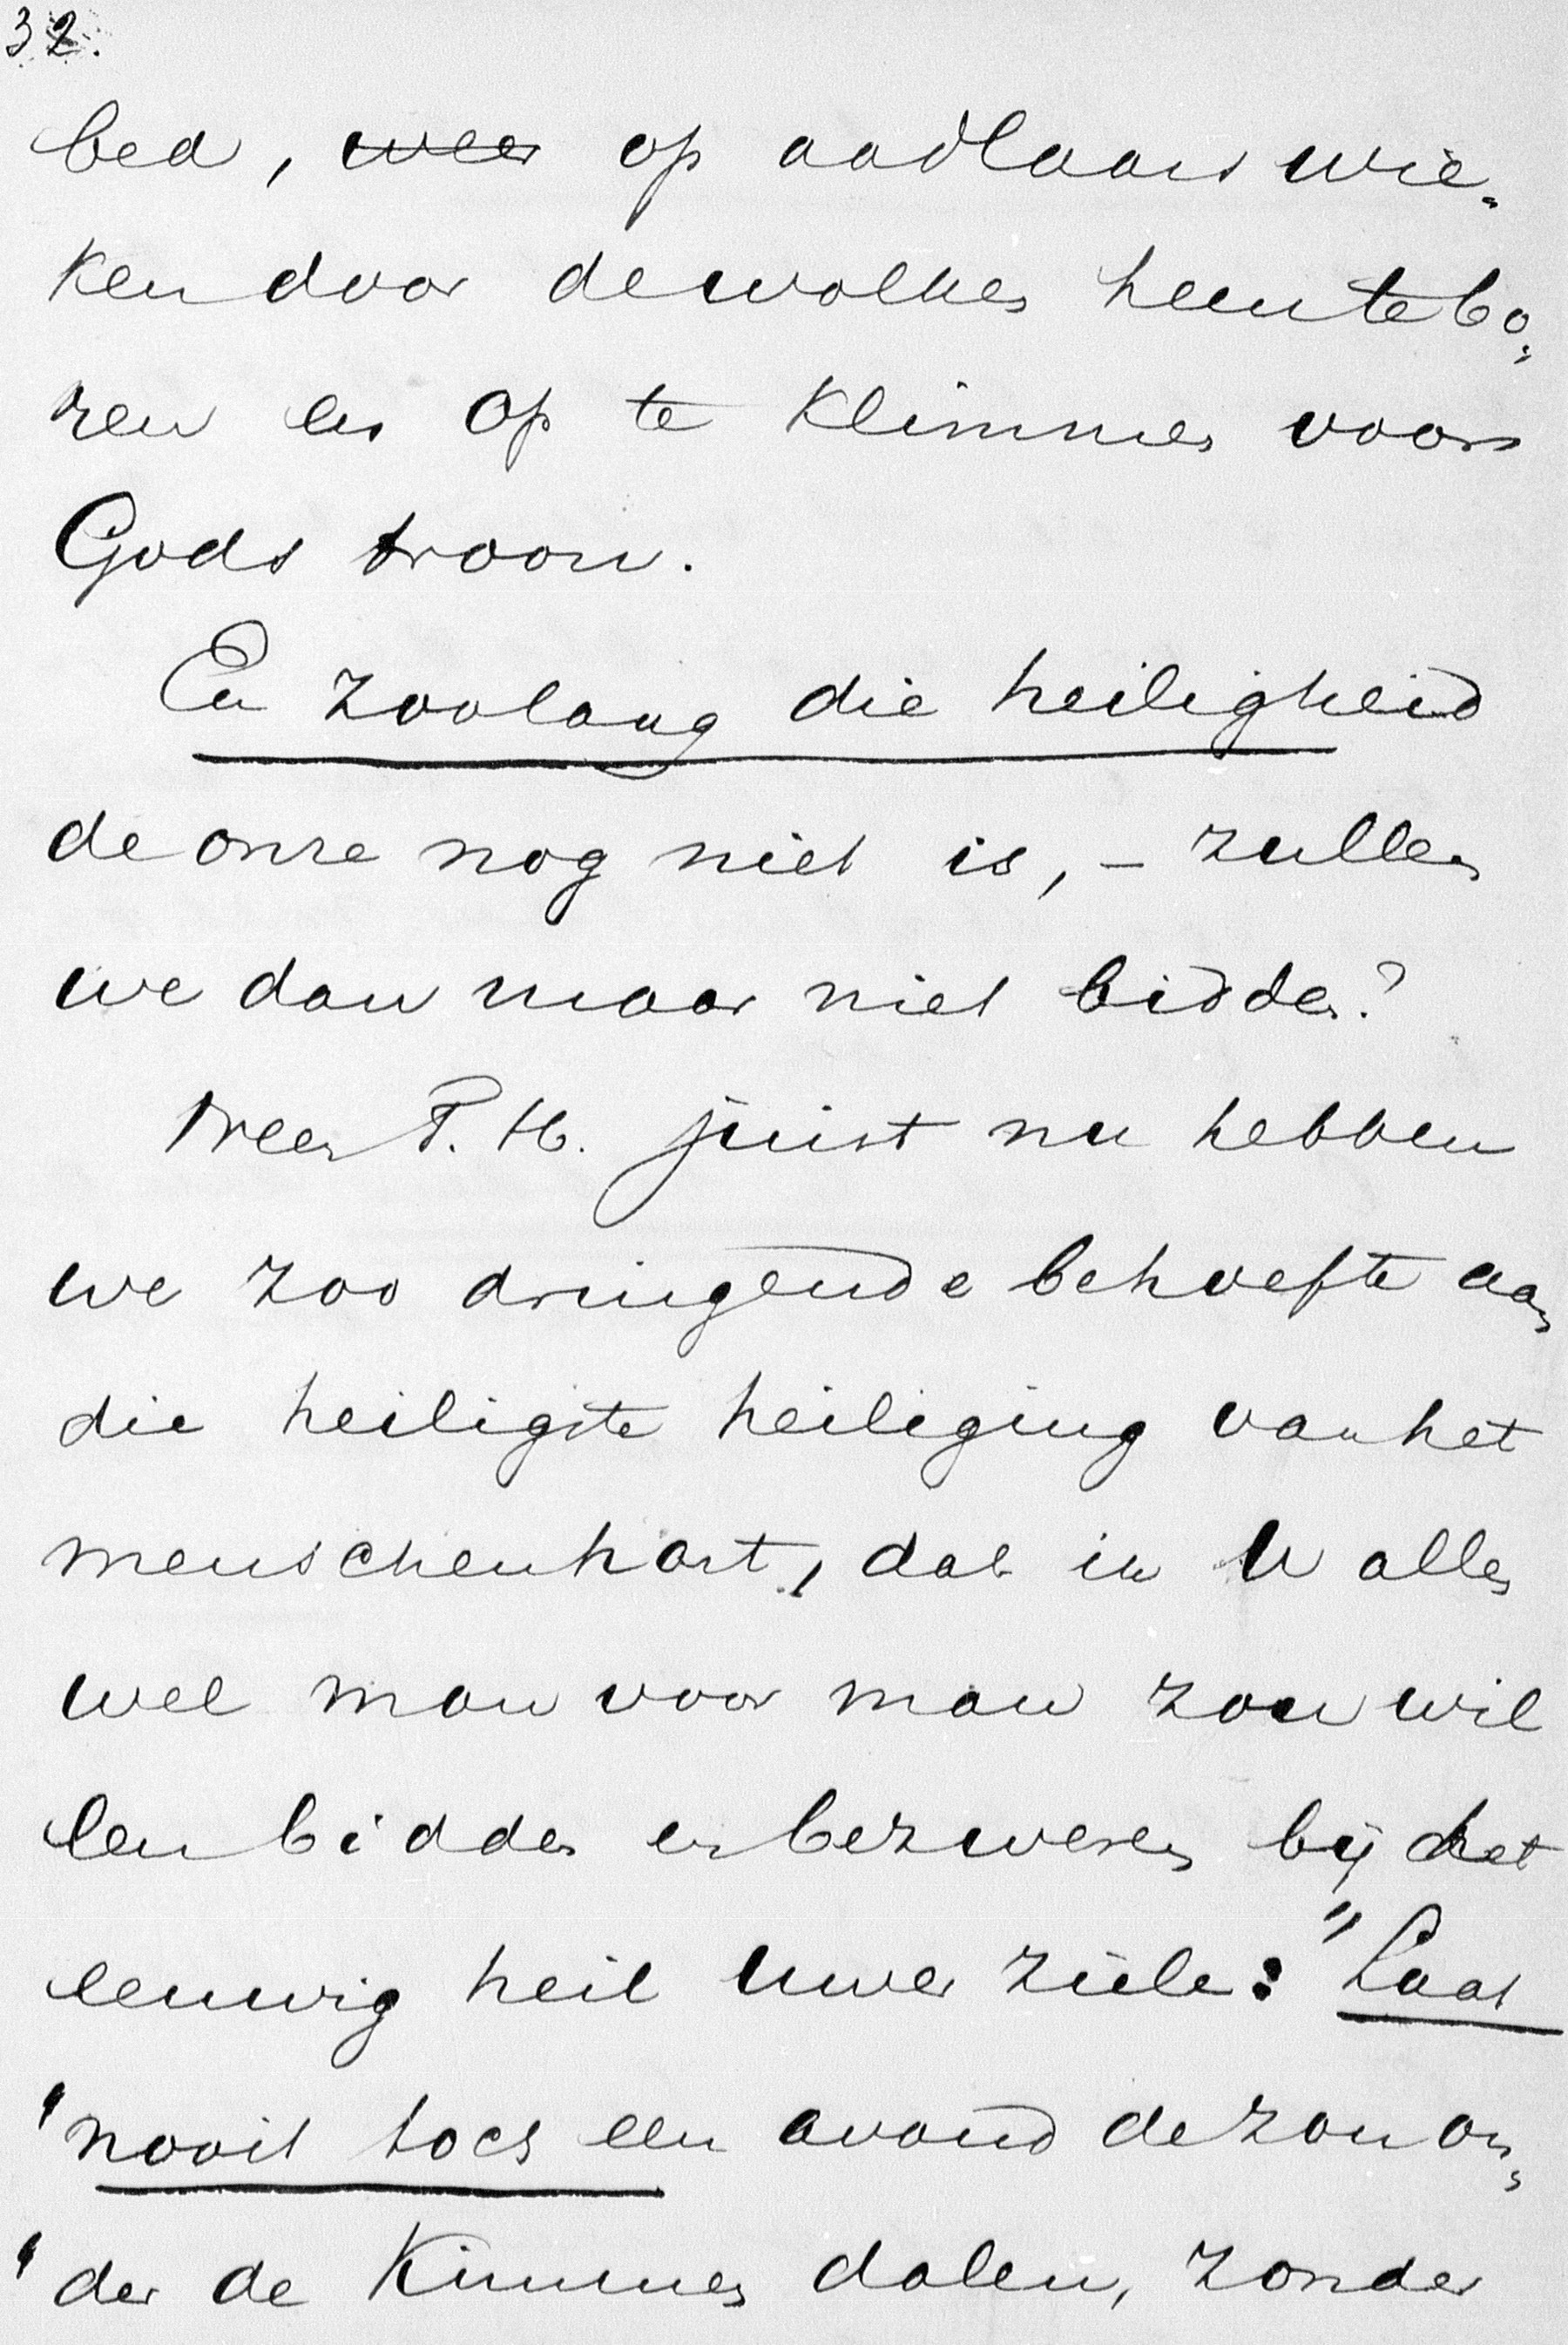 32.
bed, weer op aadlaars wie-
ken door de wolken heen te bo-
ren en op te klimmen voor
Gods troon.
En zoolang die heiligheid
de onze nog niet is, – zullen
we dan maar niet bidden?
Neen T. H. juist nu hebben
we zoo dringende behoefte aan
die heiligste heiliging van het
menschenhart, dat ik U allen
wel man voor man zou wil
len bidden en bezweren bij het
eeuwig heil Uwer ziele: "Laat
"nooit toch een avond de zon on-
"der de kimmen dalen, zonder